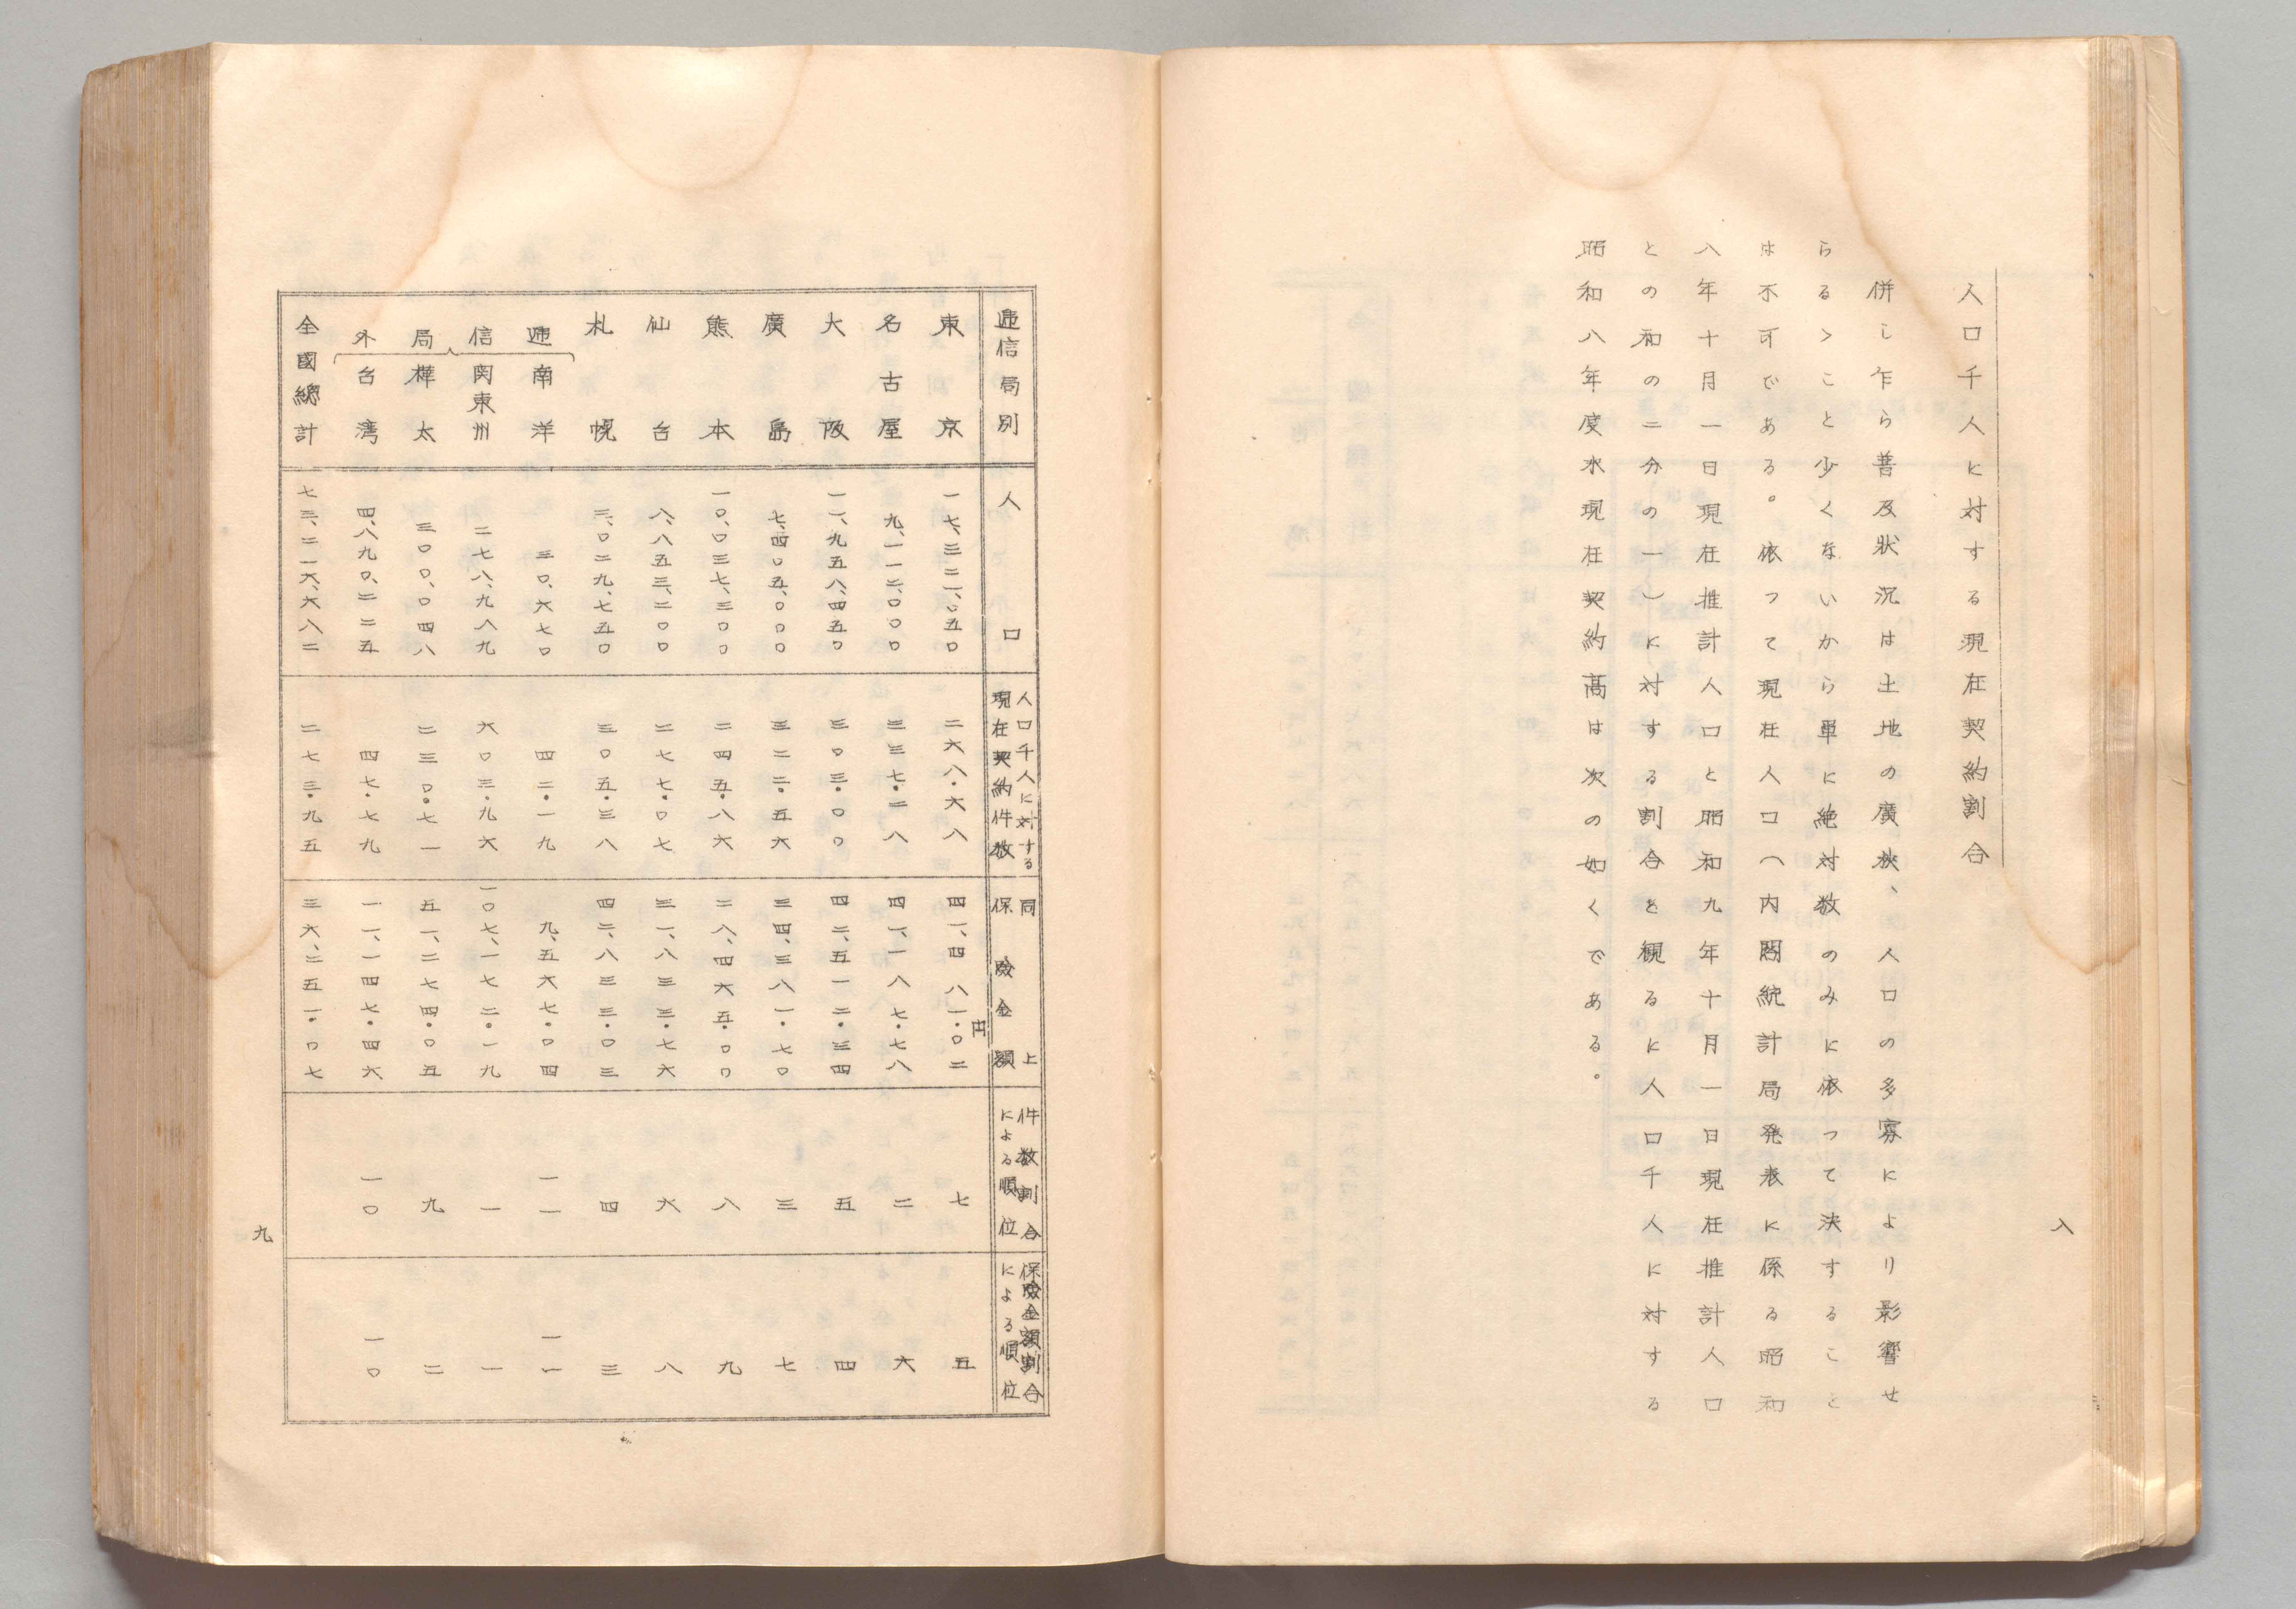 八
人口千人に対する現在契約割合
併し乍ら普及状況は土地の廣狹、人口の多寡により影響せ
らるゝこと少くないから単に絶対数のみに依つて決すること
は不可である。依つて現在人口(内閣統計局発表に係る昭和
八年十月一日現在推計人口と昭和九年十月一日現在推計人口
との和の二分の一)に対する割合を観るに人口千人に対する
昭和八年度末現在契約高は次の如くである。
逓信局別 人口 人口千人に対する現在契約件数 同上保険金額 件数割合による順位 保険金額割合による順位
東京 一七、三二一、〇五〇 二六八・六八 四一、四八一・〇二円 七 五
名古屋 九、一一二、〇〇〇 三三七・二八 四一、一八七・七八 二 六
大阪 一一、九五八、四五〇 三〇三・〇〇 四二、五一二・三四 五 四
廣島 七、四〇五、〇〇〇 三二二・五六 三四、三八一・七〇 三 七
熊本 一〇、〇三七、三〇〇 二四五・八六 二八、四六五・〇〇 八 九
仙台 八、八五三、二〇〇 二七七・〇七 三一、八三三・七六 六 八
札幌 三、〇二九、七五〇 三〇五・三八 四二、八三三・〇三 四 三
逓信局外
南洋 三〇、六七〇 四二・一九 九、五六七・〇四 一一 一一
関東州 二七八、九八九 六〇三・九六 一〇七、一七二・一九 一 一
樺太 三〇〇、〇四八 二三〇・七一 五一、二七四・〇五 九 二
台湾 四、八九〇、二二五 四七・七九 一一、一四七・四六 一〇 一〇
全國總計 七三、二一六、六八二 二七三・九五 三六、二五一・〇七
九